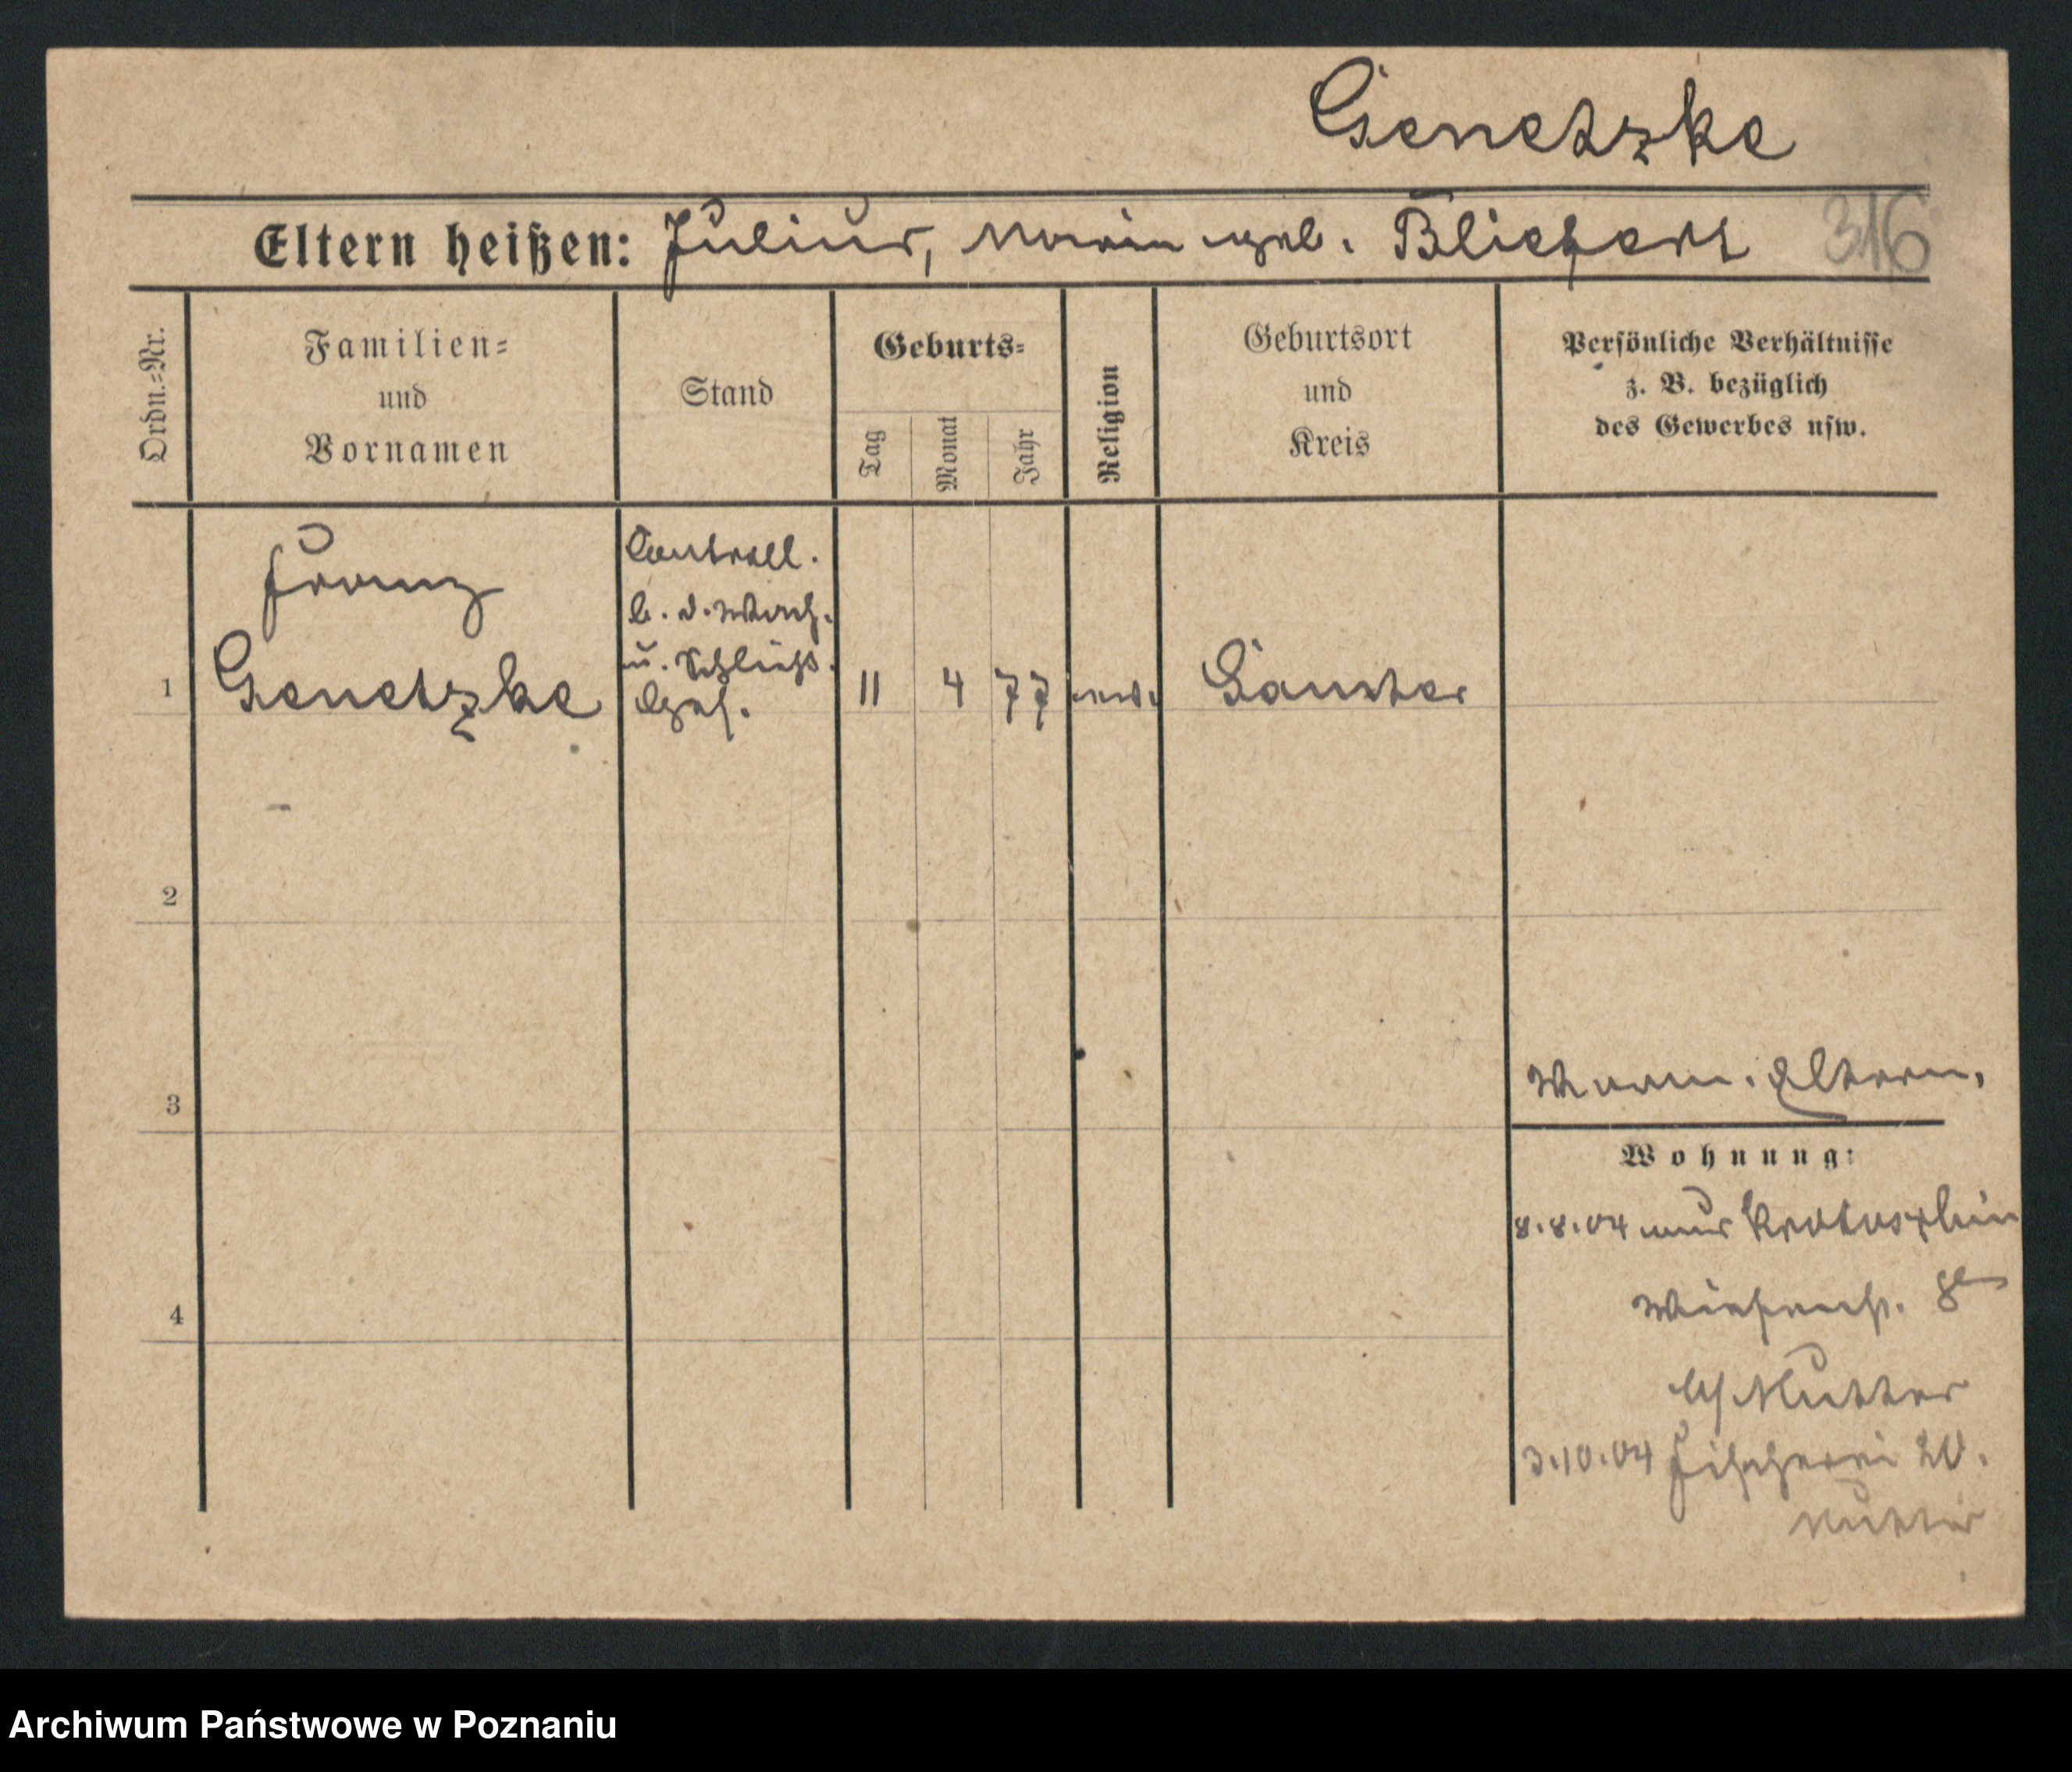 Genetzke
Eltern heißen: Julius, Maria geb. Bliefert 316
Ordn.=Nr.
Familien=
und
Vornamen
Stand
Geburts=
Tag
Monat
Jahr
Religion
Geburtsort
und
Kreis
Persönliche Verhältnisse
z. B. bezüglich
des Gewerbes usw.
1
Franz
Genetzke
Controll.
b. d. Wach.
u. Schließ.
Ges.
11 4 77 ev.
2
3
Eltern.
Wohnung:
4
8.8.04 aus Krotoschin
Wiesenstr. 8
b/ Mutter
3.10.04 Fischerei 20.
Mutter
Archiwum Państwowe w Poznaniu